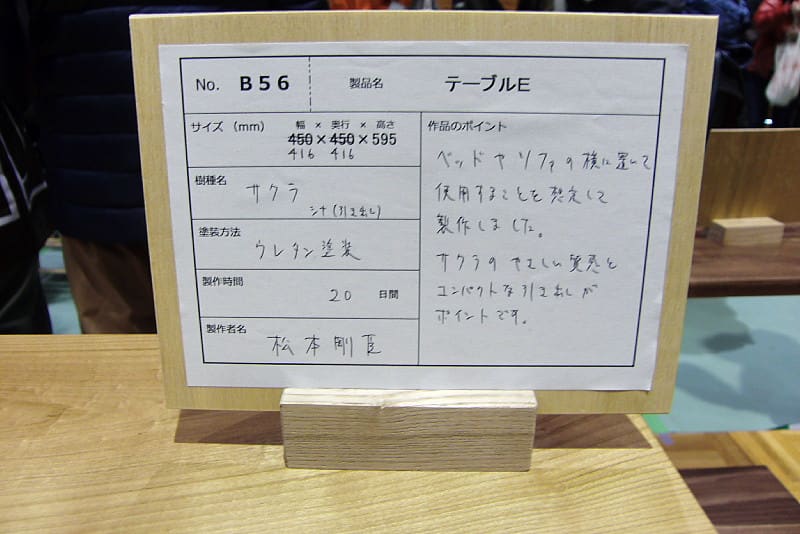 No. B56 製品名 テーブルE
サイズ (mm)
幅 × 奥行 × 高さ
450×450×595
416 416
樹種名
サクラ
シナ(引き出し)
塗装方法
ウレタン塗装
製作時間
20 日間
製作者名
松本剛
作品のポイント
ベッドやソファの横に置いて
使用することを想定して
製作しました。
サクラのやさしい質感と
コンパクトな引き出しが
ポイントです。